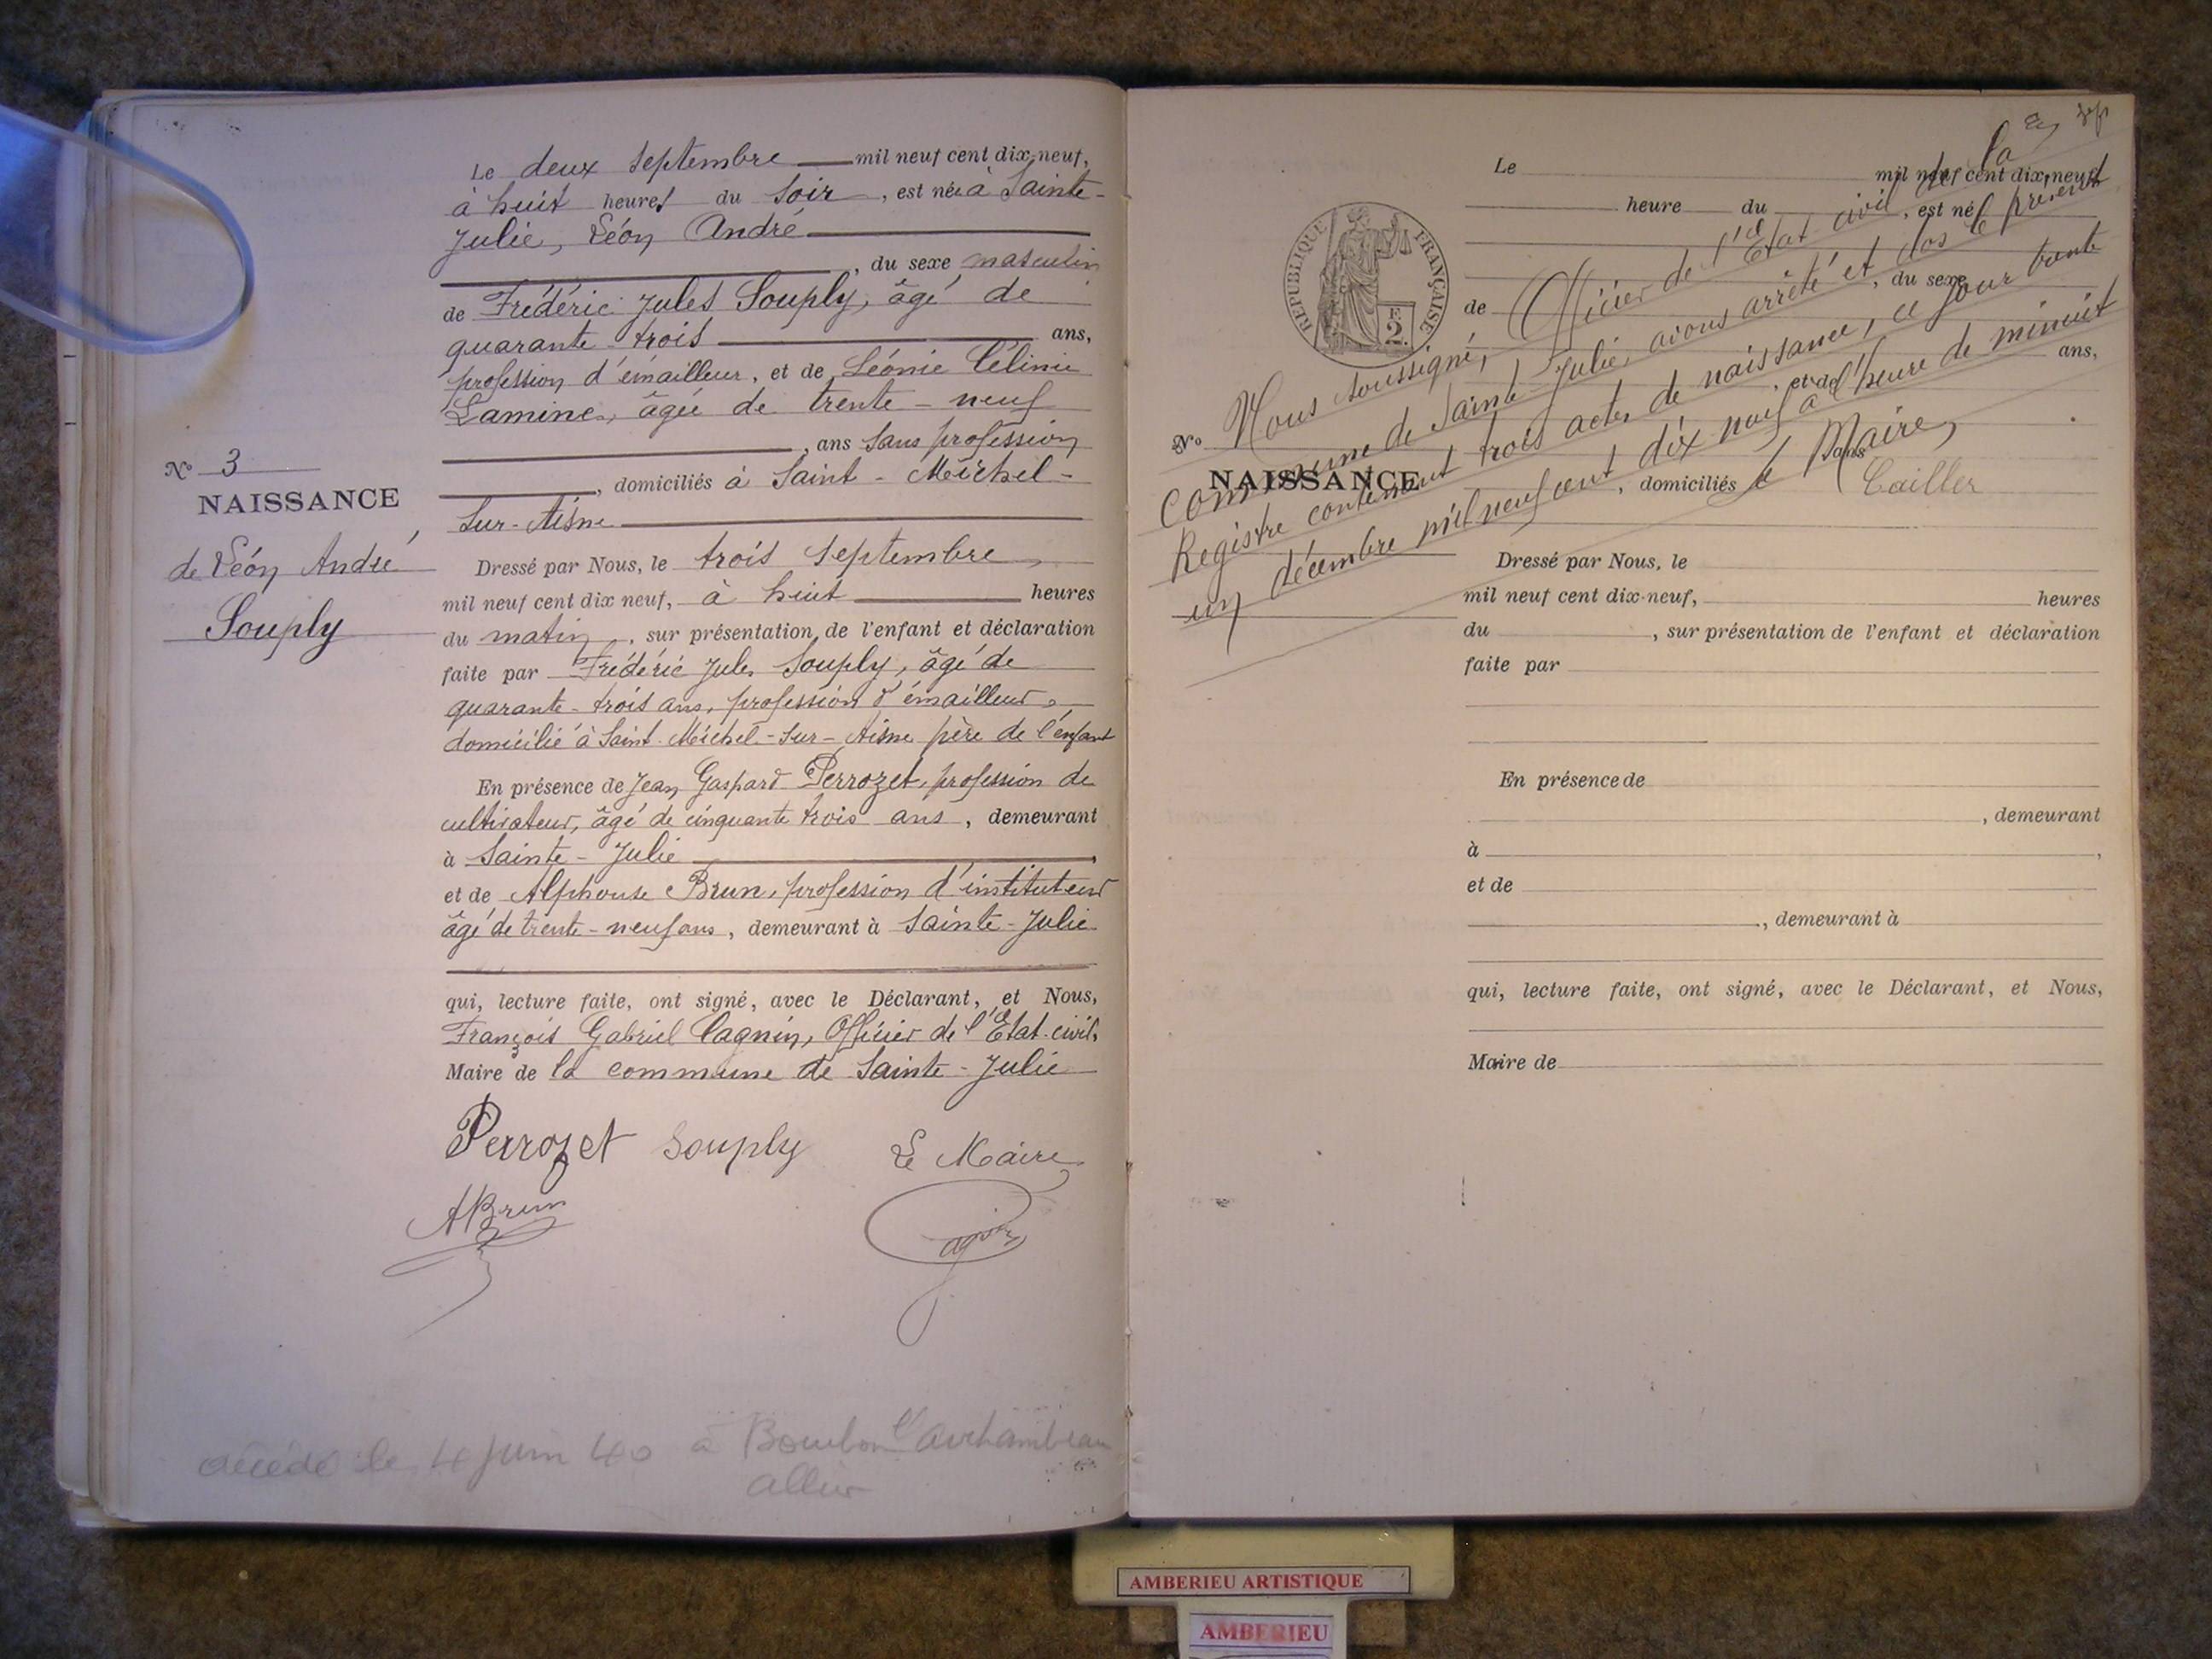 Le deux Septembre mil neuf cent dix-neuf,
à huit heures du Soir, est né à Sainte-
Julie, Léon André
, du sexe masculin
de Frédéric Jules Souply, âgé de
quarante-trois ans,
profession d'émailleur, et de Léonie Céline
Lamine, âgée de trente-neuf
, ans Sans profession
, domiciliés à Saint-Michel-
Sur-Aisne
N° 3
NAISSANCE
de Léon André
Souply
Dressé par Nous, le trois Septembre
mil neuf cent dix neuf, à huit heures
du matin, sur présentation de l'enfant et déclaration
faite par Frédéric Jules Souply, âgé de
quarante-trois ans, profession d'émailleur,
domicilié à Saint-Michel-Sur-Aisne père de l'enfant
En présence de Jean Gaspard Perrozet, profession de
cultivateur, âgé de cinquante trois ans, demeurant
à Sainte-Julie,
et de Alphonse Brun, profession d'instituteur
âgé de trente-neuf ans, demeurant à Sainte-Julie
qui, lecture faite, ont signé, avec le Déclarant, et Nous,
François Gabriel Cagnin, Officier de l'Etat-civil,
Maire de la commune de Sainte-Julie
Perrozet Souply Le Maire
ABrun
décédé le 4 Juin 40 à Bourbon l'archambeau
allier
RÉPUBLIQUE FRANÇAISE
F.
2.
Le mil neuf cent dix-neuf
heure du , est né
, du sexe
de
, et de ans,
ans
N°
NAISSANCE
, domiciliés à
Nous soussigné, Officier de l'Etat civil de la
commune de Sainte Julie, avons arrêté et clos le présent
Registre contenant trois actes de naissance, ce jour trente
un décembre mil neuf cent dix neuf à l'heure de minuit
le Maire,
Cailler
Dressé par Nous, le
mil neuf cent dix-neuf, heures
du , sur présentation de l'enfant et déclaration
faite par
En présence de
, demeurant
à ,
et de
, demeurant à
qui, lecture faite, ont signé, avec le Déclarant, et Nous,
Maire de
AMBERIEU ARTISTIQUE
AMBERIEU